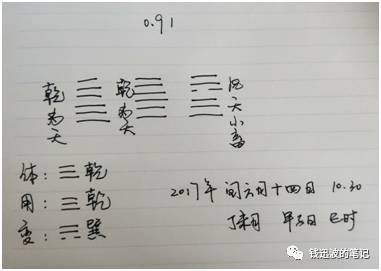 0.91
乾为天
乾为天
风天小畜
体：☰乾
用：☰乾
变：☴巽
2017年 闰六月十四日 10.30
丁未月 甲子日 巳时
钱迅波的笔记